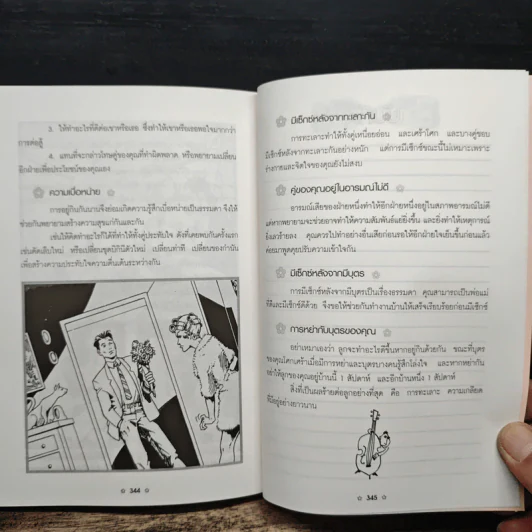 3. ให้ทำอะไรที่ดีต่อเขาหรือเธอ ซึ่งทำให้เขาหรือเธอพอใจมากกว่า
การต่อสู้
4. แทนที่จะกล่าวโทษคู่ของคุณที่ทำผิดพลาด หรือพยายามเปลี่ยน
อีกฝ่ายเพื่อประโยชน์ของคุณเอง
ความเบื่อหน่าย
การอยู่กินกันนานไปจึงย่อมเกิดความรู้สึกเบื่อหน่ายเป็นธรรมดา จึงให้
ช่วยกันพยายามสร้างความสุขแก่กันและกัน
เช่นให้คิดทำอะไรก็ได้ที่ทำให้ทั้งคู่ประทับใจ ดังที่เคยพบกันครั้งแรก
เช่นตัดเสื้อใหม่ หรือเปลี่ยนชุดบิกินีตัวใหม่ เปลี่ยนท่าที เปลี่ยนของกำนัน
เพื่อสร้างความประทับใจความตื่นเต้นระหว่างกัน
344
มีเซ็กซ์หลังจากทะเลาะกัน
การทะเลาะทำให้ทั้งคู่เหนื่อยอ่อน และเศร้าโศก และบางคู่ชอบ
มีเซ็กซ์หลังจากทะเลาะกันอย่างหนัก แต่การมีเซ็กซ์ขณะนี้ไม่เหมาะเพราะ
ร่างกายและจิตใจของคุณยังไม่สงบ
คู่ของคุณอยู่ในอารมณ์ไม่ดี
อารมณ์เสียของฝ่ายหนึ่งทำให้อีกฝ่ายหนึ่งอยู่ในสภาพอารมณ์ไม่ดี
แต่หากพยายามจะช่วยอาจทำให้ความสัมพันธ์แย่ยิ่งขึ้น และยิ่งทำให้เหตุการณ์
ยิ่งเลวร้ายลง คุณควรไปทำอย่างอื่นเสียก่อนรอให้อีกฝ่ายใจเย็นขึ้นก่อนแล้ว
ค่อยมาพูดคุยปรับความเข้าใจกัน
มีเซ็กซ์หลังจากมีบุตร
การมีเซ็กซ์หลังจากมีบุตรเป็นเรื่องธรรมดา คุณสามารถเป็นพ่อแม่
ที่ดีและมีเซ็กซ์ดีด้วย จึงขอให้ช่วยกันทำงานบ้านให้เสร็จเรียบร้อยก่อนมีเซ็กซ์
การหย่ากับบุตรของคุณ
อย่าเหมาเองว่า ลูกจะทำอะไรดีขึ้นหากอยู่กินด้วยกัน ขณะที่บุตร
ของคุณโศกเศร้าเมื่อมีการหย่าและบุตรบางคนรู้สึกโล่งใจ และหากหย่ากัน
อย่าให้ลูกของคุณอยู่บ้านนี้ 1 สัปดาห์ และอีกบ้านหนึ่ง 1 สัปดาห์
สิ่งที่เป็นผลร้ายต่อลูกอย่างที่สุด คือ การทะเลาะ ความเกลียด
ที่มีอยู่อย่างยาวนาน
345